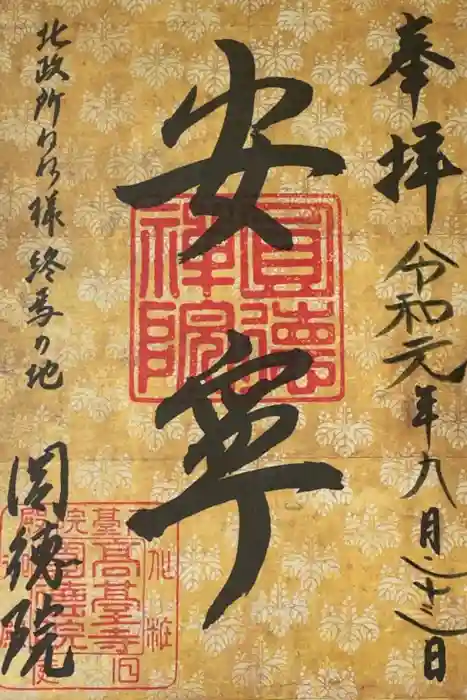 奉拝
令和元年九月二十三日
安寧
圓德禪院
北政所ねね様 終焉の地
圓徳院
高臺寺